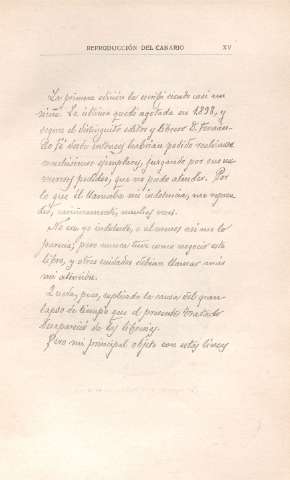 REPRODUCCIÓN DEL CANARIO XV
La primera edición la escribí siendo casi un
niño. La última quedó agotada en 1898, y
según el distinguido editor y librero D. Fernan-
do Fé desde entonces habrían podido realizarse
ejemplares, juzgando por sus nu-
merosos pedidos, que no pudo atender. Por
lo que él llamaba mi indolencia, me repren-
dió, cariñosamente, muchas veces.
No era yo indolente, o al menos así me lo
parecía; pero nunca tuve como negocio este
libro, y otros cuidados debían llamar más
mi atención.
Queda, pues, explicada la causa del gran
lapso de tiempo que el presente Tratado
desapareció de las librerías.
Pero mi principal objeto con estas líneas